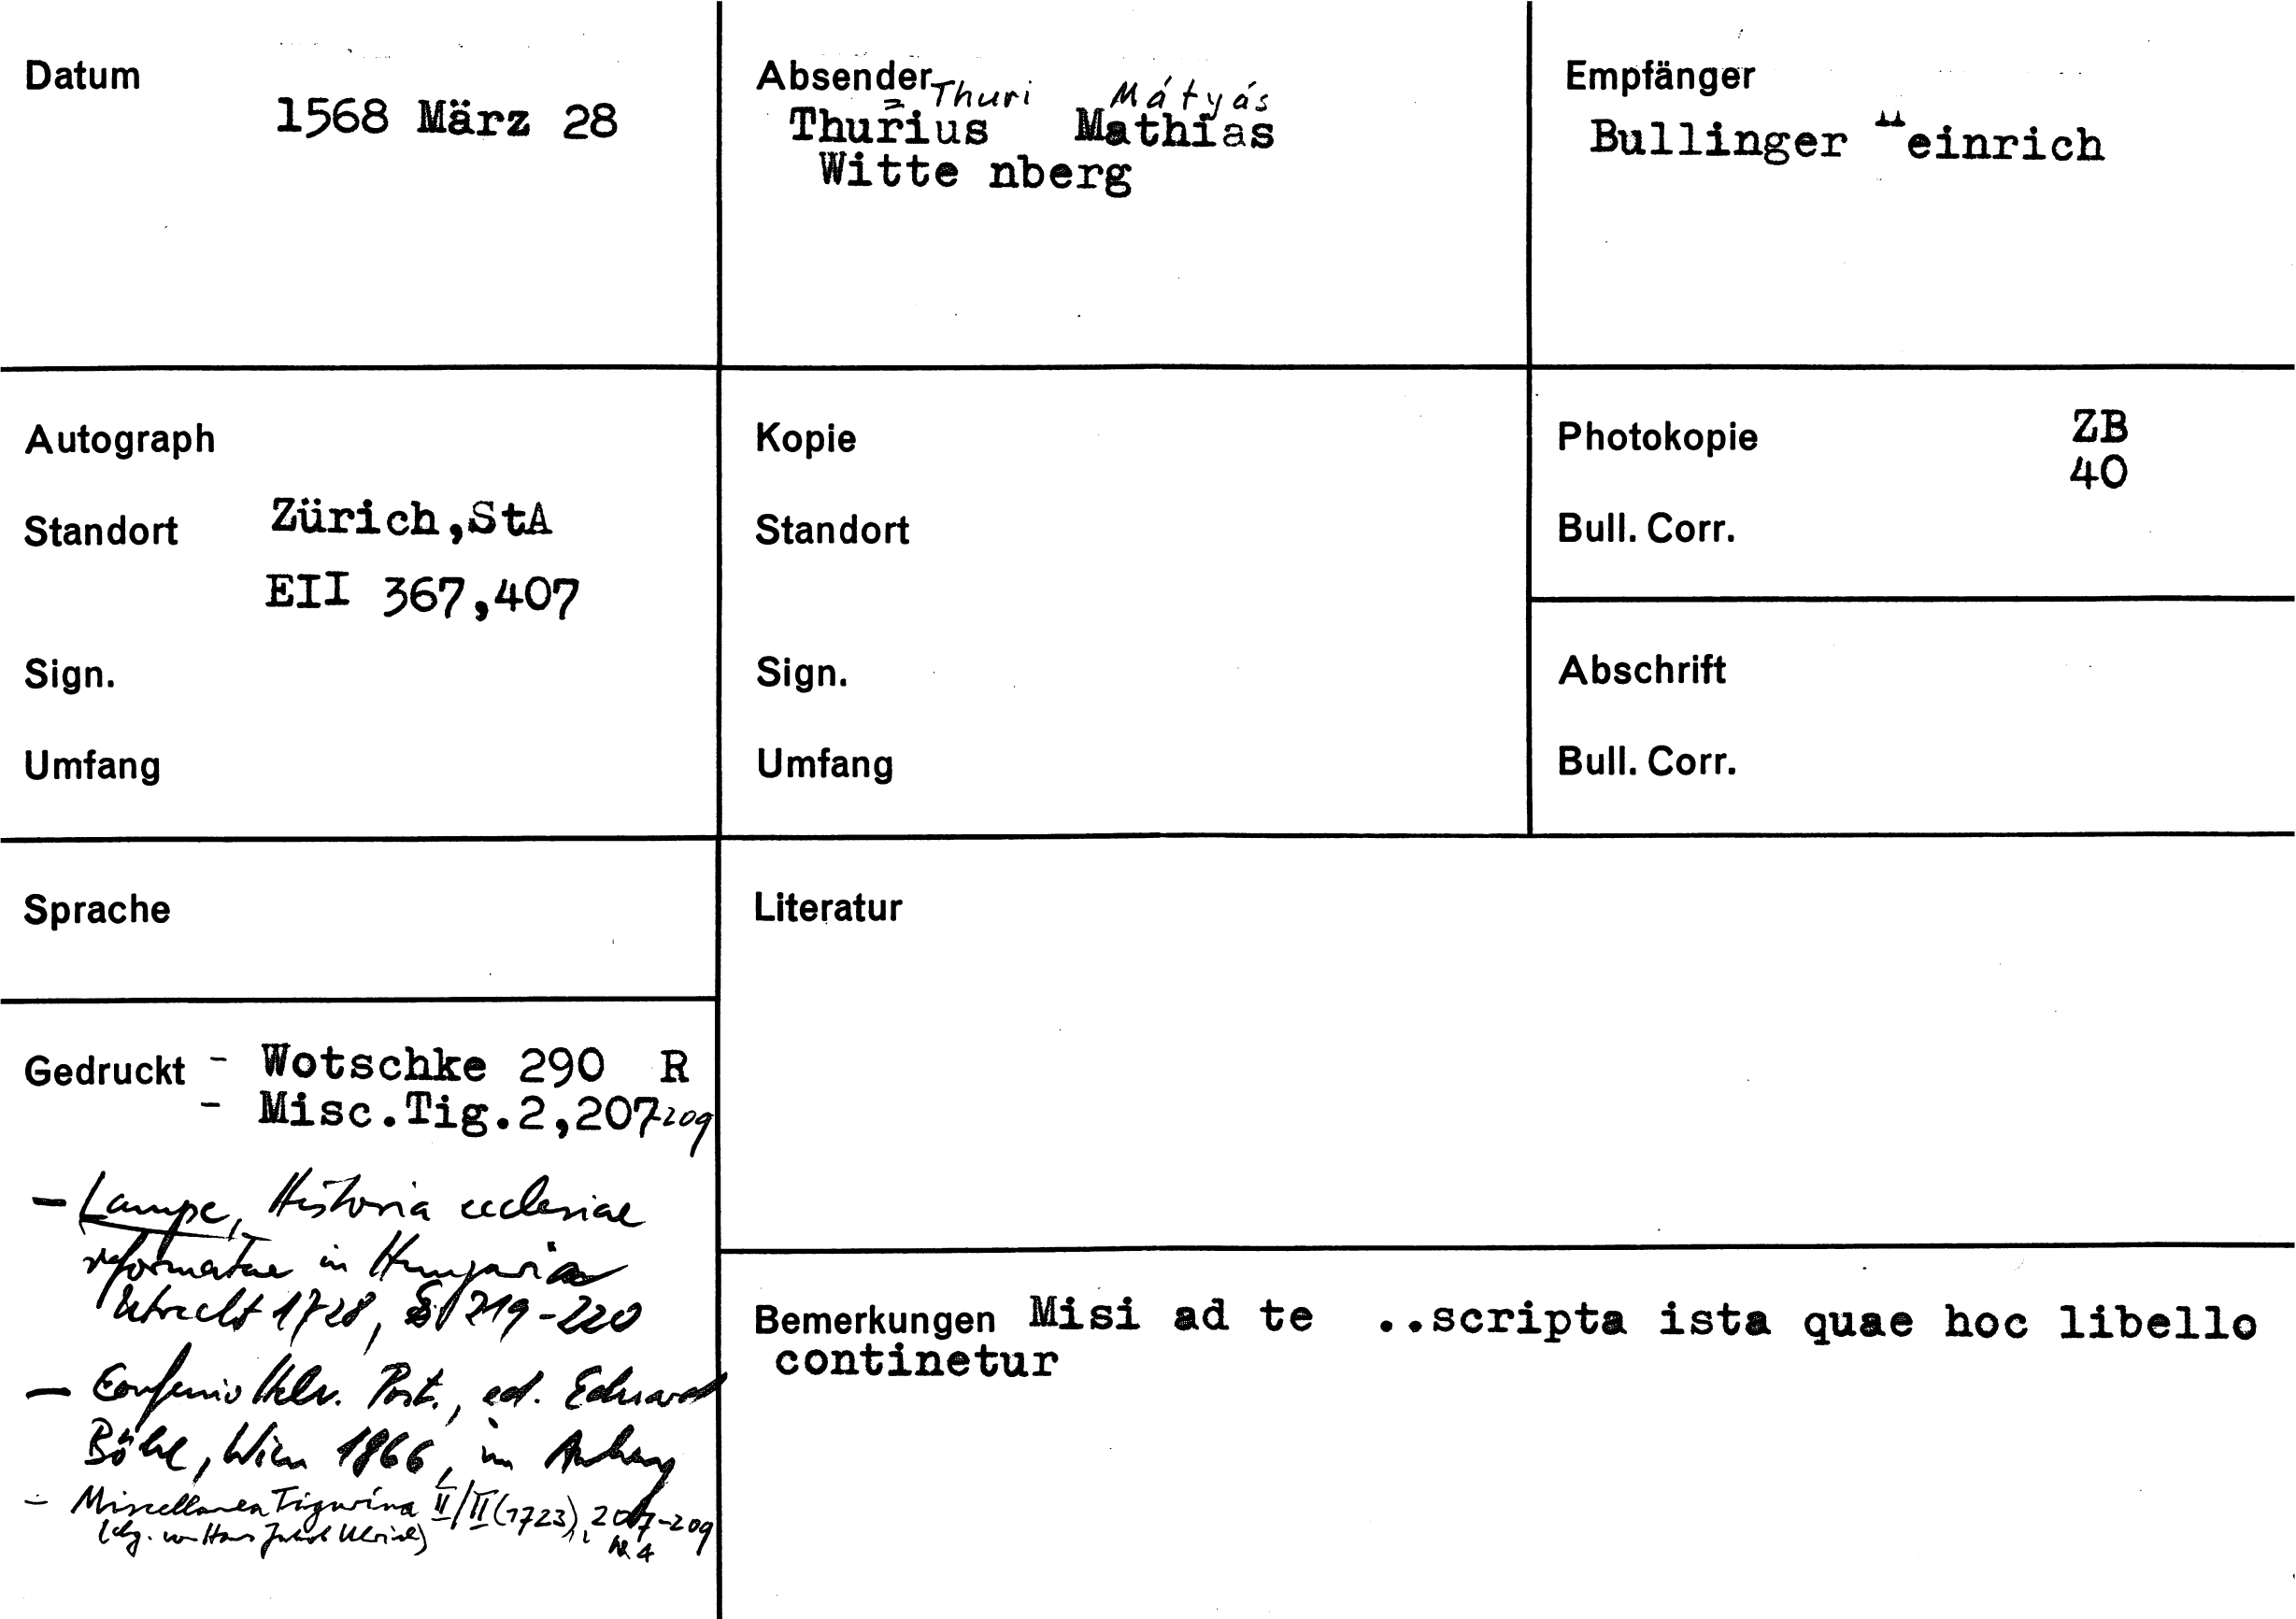 Datum
1568 März 28
Absender
= Thuri Mátyás
Thurius Mathias
Witte nberg
Empfänger
Bullinger Heinrich
Autograph
Standort Zürich,StA
EII 367,407
Sign.
Umfang
Kopie
Standort
Sign.
Umfang
Photokopie ZB
40
Bull. Corr.
Abschrift
Bull. Corr.
Sprache
Literatur
Gedruckt - Wotschke 290 R
- Misc.Tig.2,207-209
- Lampe, Historia ecclesiae
reformatae in Hungaria
Utrecht 1728, S. 219-220
- Confessio Helv. Post., ed. Eduard
Böhl, Wien 1866, im Anhang
- Miscellanea Tigurina II/II (1723), 207-209
(hg. von Hans Jakob Ulrich) Nr. 4
Bemerkungen Misi ad te ..scripta ista quae hoc libello
continetur